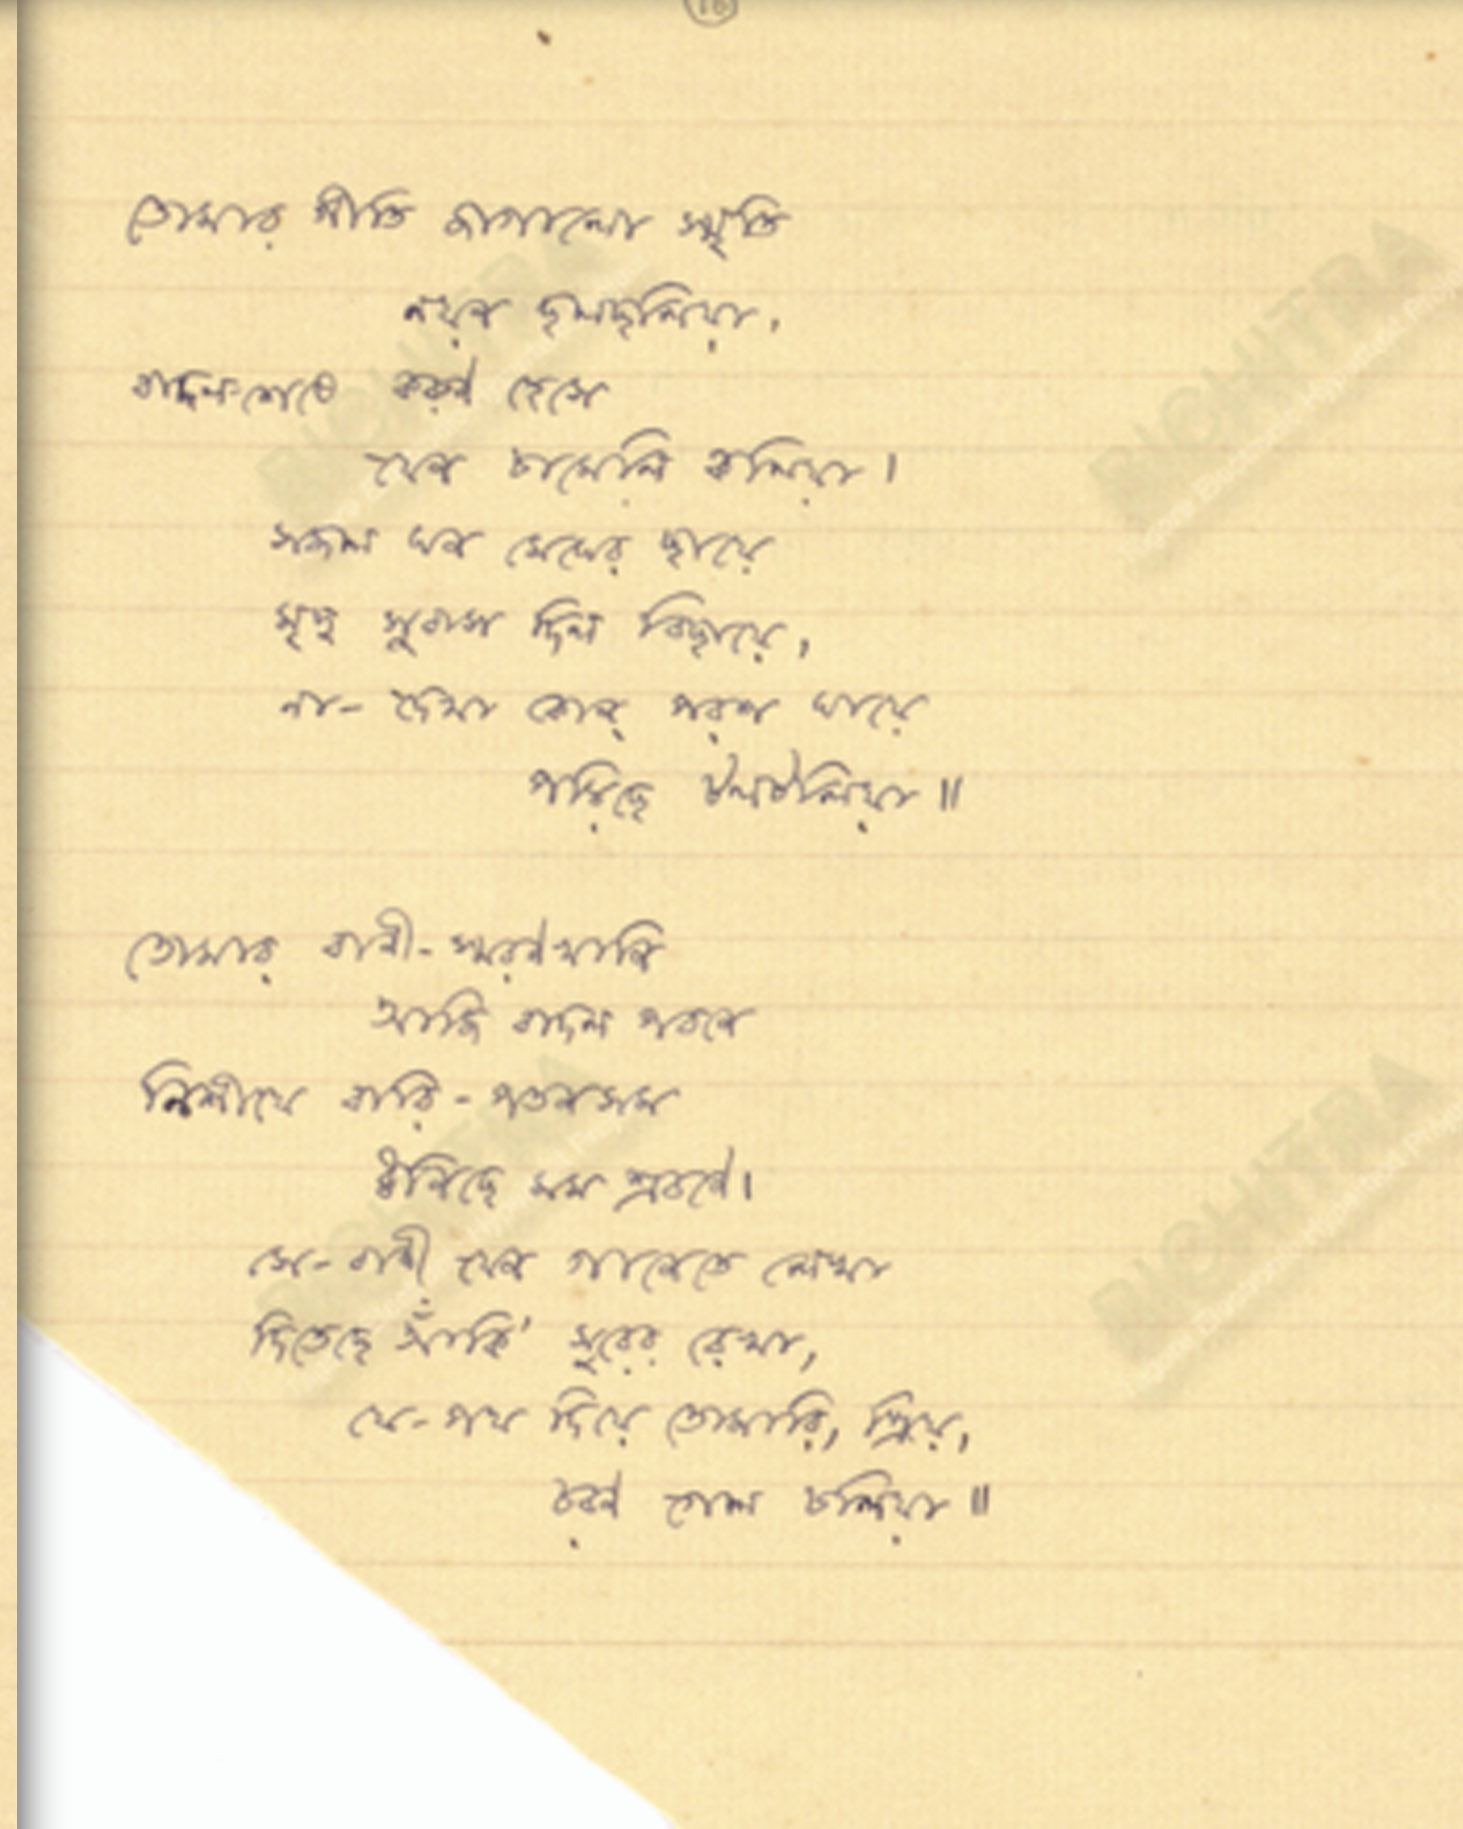 ১৬
তোমার গীতি জাগালো স্মৃতি
নয়ন ছলছলিয়া,
বাদল-শেষে করুণ হেসে
যেন চামেলি কলিয়া।
সজল ঘন মেঘের ছায়ে
মৃদু সুবাস দিল বিছায়ে,
না-দেখা কোন্ পরশ ঘায়ে
পড়িছে টলটলিয়া॥
তোমার বাণী-স্মরণখানি
আজি বাদল পবনে
নিশীথে বারি-পতনসম
ধ্বনিছে মম শ্রবণে।
সে-বাণী যেন গানেতে লেখা
দিতেছে আঁকি' সুরের রেখা,
যে-পথ দিয়ে তোমারি, প্রিয়,
চরণ গেল চলিয়া॥
BICHITRA
BICHITRA
BICHITRA
BICHITRA